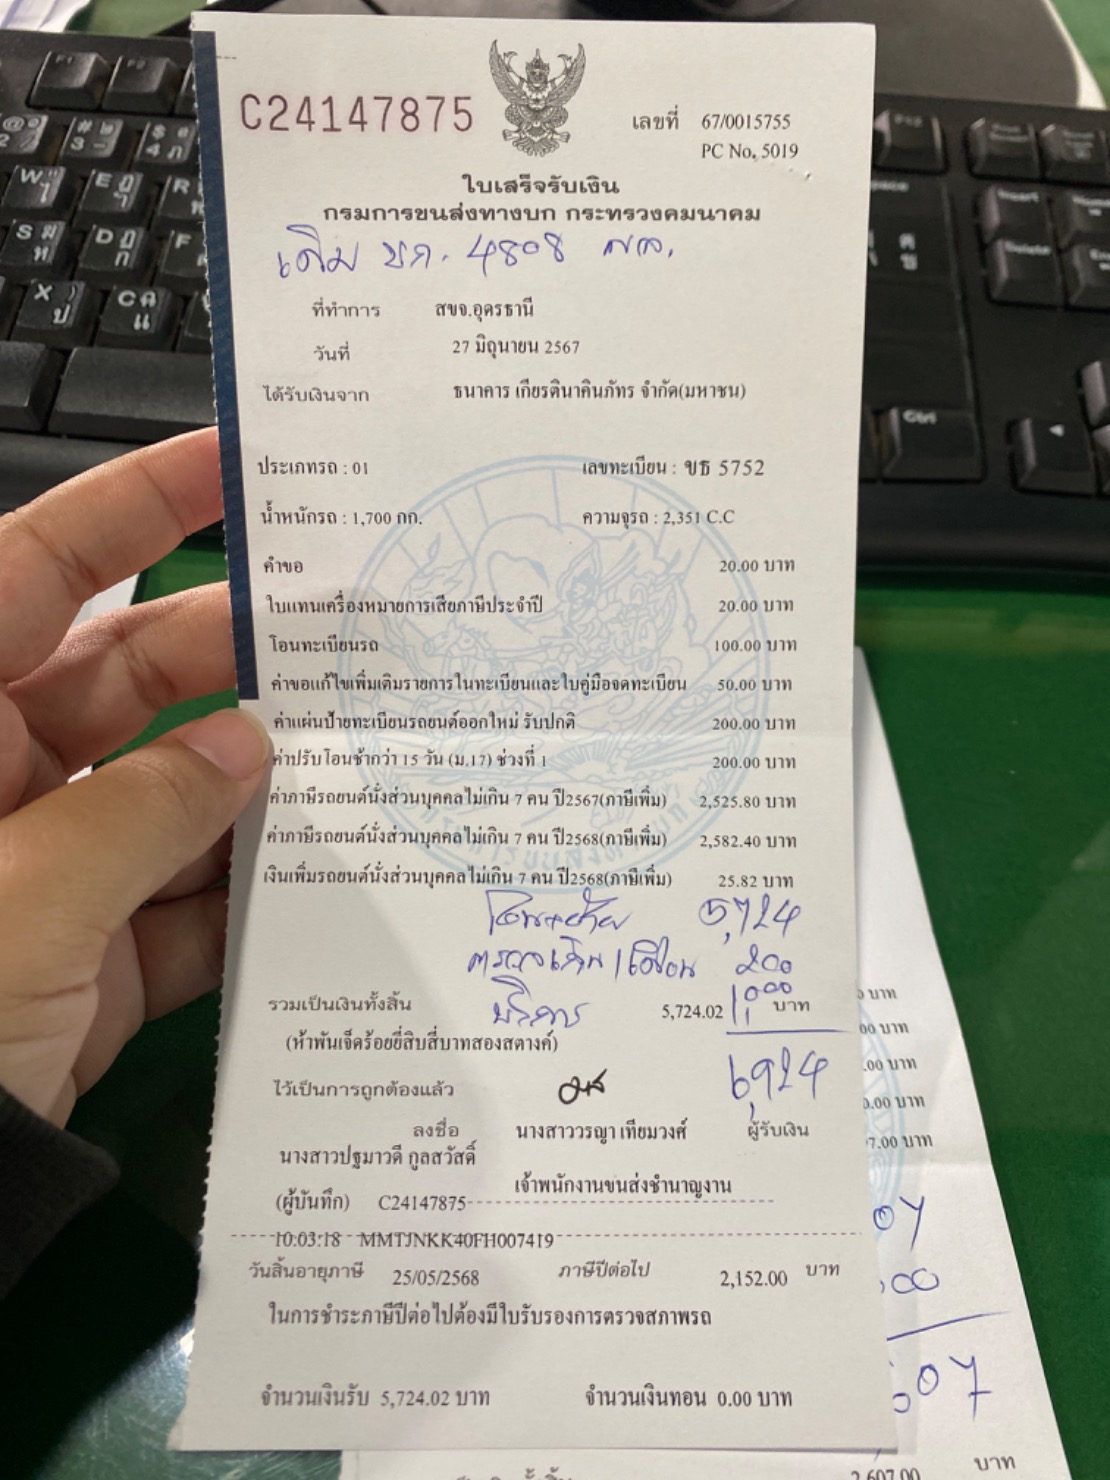 C24147875
เลขที่ 67/0015755
PC No. 5019
ใบเสร็จรับเงิน
กรมการขนส่งทางบก กระทรวงคมนาคม
เดิม ขก. 4808 สก.
ที่ทำการ สขจ.อุดรธานี
วันที่ 27 มิถุนายน 2567
ได้รับเงินจาก ธนาคาร เกียรตินาคินภัทร จำกัด(มหาชน)
ประเภทรถ : 01 เลขทะเบียน : ขธ 5752
น้ำหนักรถ : 1,700 กก. ความจุรถ : 2,351 C.C
คำขอ 20.00 บาท
ใบแทนเครื่องหมายการเสียภาษีประจำปี 20.00 บาท
โอนทะเบียนรถ 100.00 บาท
ค่าขอแก้ไขเพิ่มเติมรายการในทะเบียนและใบคู่มือจดทะเบียน 50.00 บาท
ค่าแผ่นป้ายทะเบียนรถยนต์ออกใหม่ รับปกติ 200.00 บาท
ค่าปรับโอนช้ากว่า 15 วัน (ม.17) ช่วงที่ 1 200.00 บาท
ค่าภาษีรถยนต์นั่งส่วนบุคคลไม่เกิน 7 คน ปี2567(ภาษีเพิ่ม) 2,525.80 บาท
ค่าภาษีรถยนต์นั่งส่วนบุคคลไม่เกิน 7 คน ปี2568(ภาษีเพิ่ม) 2,582.40 บาท
เงินเพิ่มรถยนต์นั่งส่วนบุคคลไม่เกิน 7 คน ปี2568(ภาษีเพิ่ม) 25.82 บาท
โอน+ย้าย 5,724
ตรวจเกิน 1 เดือน 200
รวมเป็นเงินทั้งสิ้น บริการ 5,724.02 1,000 บาท
(ห้าพันเจ็ดร้อยยี่สิบสี่บาทสองสตางค์)
6,924
ไว้เป็นการถูกต้องแล้ว
ลงชื่อ นางสาววรญา เทียมวงศ์ ผู้รับเงิน
นางสาวปฐมาวดี กูลสวัสดิ์
เจ้าพนักงานขนส่งชำนาญงาน
(ผู้บันทึก) C24147875
10:03:18 MMTJNKK40FH007419
วันสิ้นอายุภาษี 25/05/2568 ภาษีปีต่อไป 2,152.00 บาท
ในการชำระภาษีปีต่อไปต้องมีใบรับรองการตรวจสภาพรถ
จำนวนเงินรับ 5,724.02 บาท จำนวนเงินทอน 0.00 บาท
บาท
00 บาท
.00 บาท
0.00 บาท
7.00 บาท
07
607
2,607.00 บาท